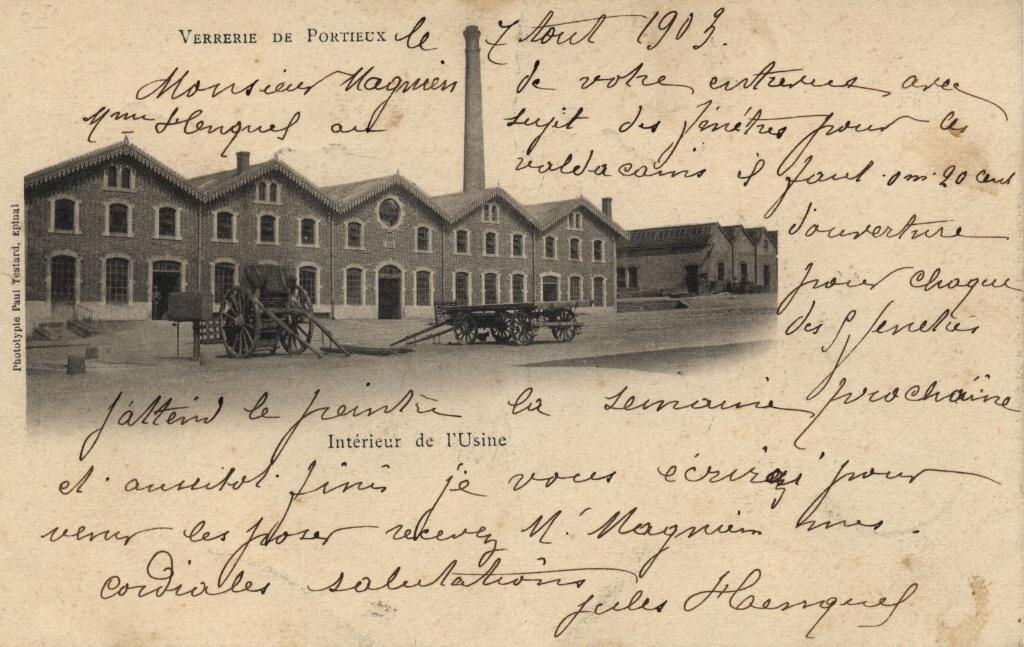 VERRERIE DE PORTIEUX le 7 Aout 1903.
Monsieur Magnien de votre entrevue avec
Mme Haenquel au sujet des fenêtres pour les
il faut 0 m. 20 cent
d'ouverture
pour chaque
des fenetres
j'attend le peintre la semaine prochaine
Intérieur de l'Usine
et aussitot finis je vous écrirai pour
venir les poser recevez Mr Magnien mes
cordiales salutations
Jules Haenquel
Phototypie Paul Testard, Epinal